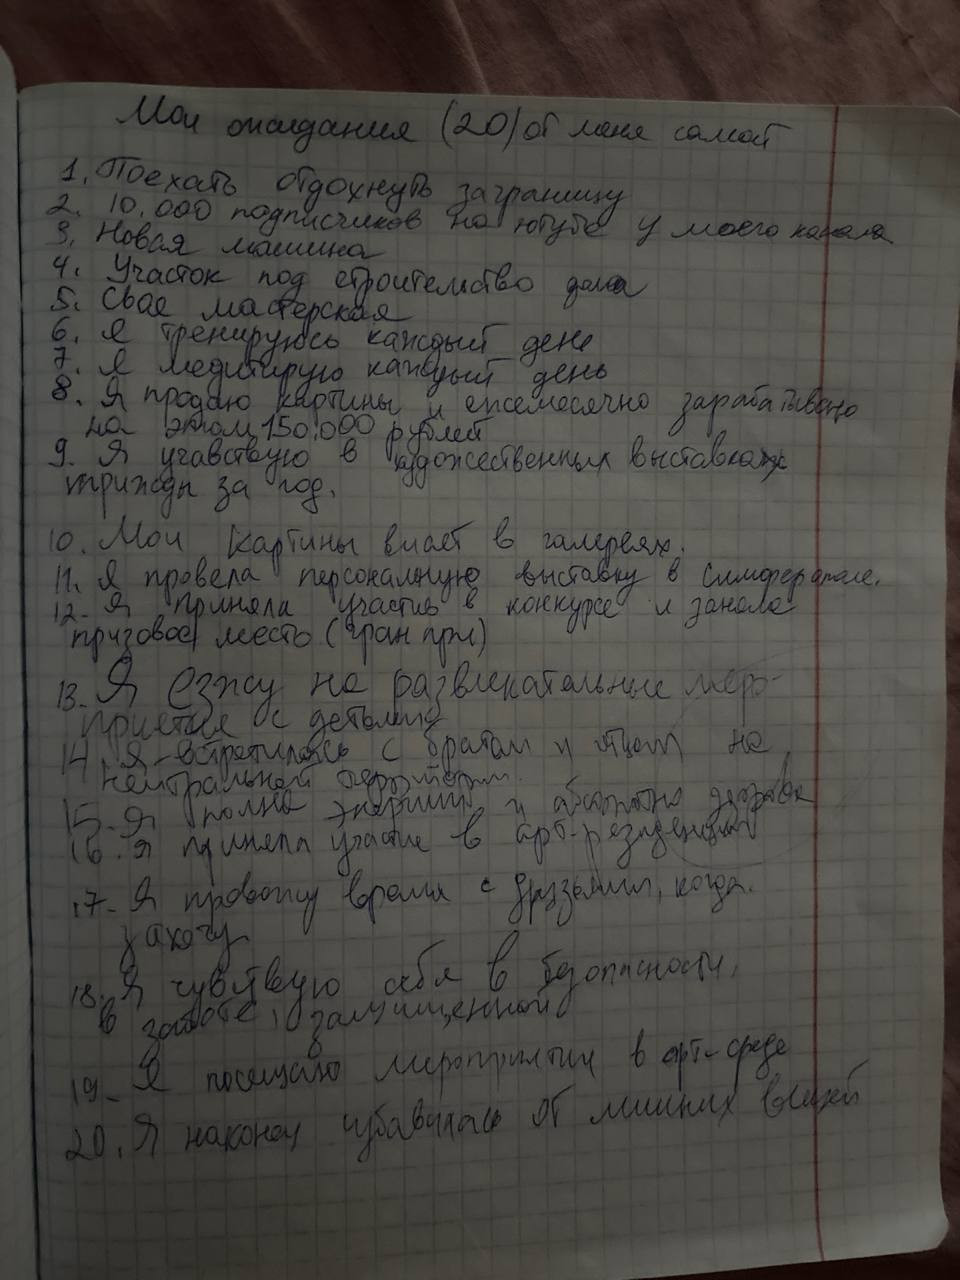 Мои ожидания (20) от меня самой
1. Поехать отдохнуть заграницу
2. 10.000 подписчиков на ютубе у моего канала
3. Новая машина
4. Участок под строительство дома
5. Своя мастерская
6. Я тренируюсь каждый день
7. Я медитирую каждый день
8. Я продаю картины и ежемесячно зарабатываю
на этом 150.000 рублей
9. Я учавствую в художественных выставках
трижды за год.
10. Мои картины висят в галереях.
11. Я провела персональную выставку в Симферополе.
12. Я приняла участие в конкурсе и заняла
призовое место (гран при)
13. Я езжу на развлекательные меро-
приятия с детьми
14. Я встретилась с братом и отцом на
нейтральной территории.
15. Я полна энергии и абсолютно здорова
16. Я приняла участие в арт-резиденции
17. Я провожу время с друзьями, когда
захочу
18. Я чувствую себя в безопасности,
в заботе, защищенной
19. Я посещаю мероприятия в арт-среде
20. Я наконец избавилась от лишних вещей